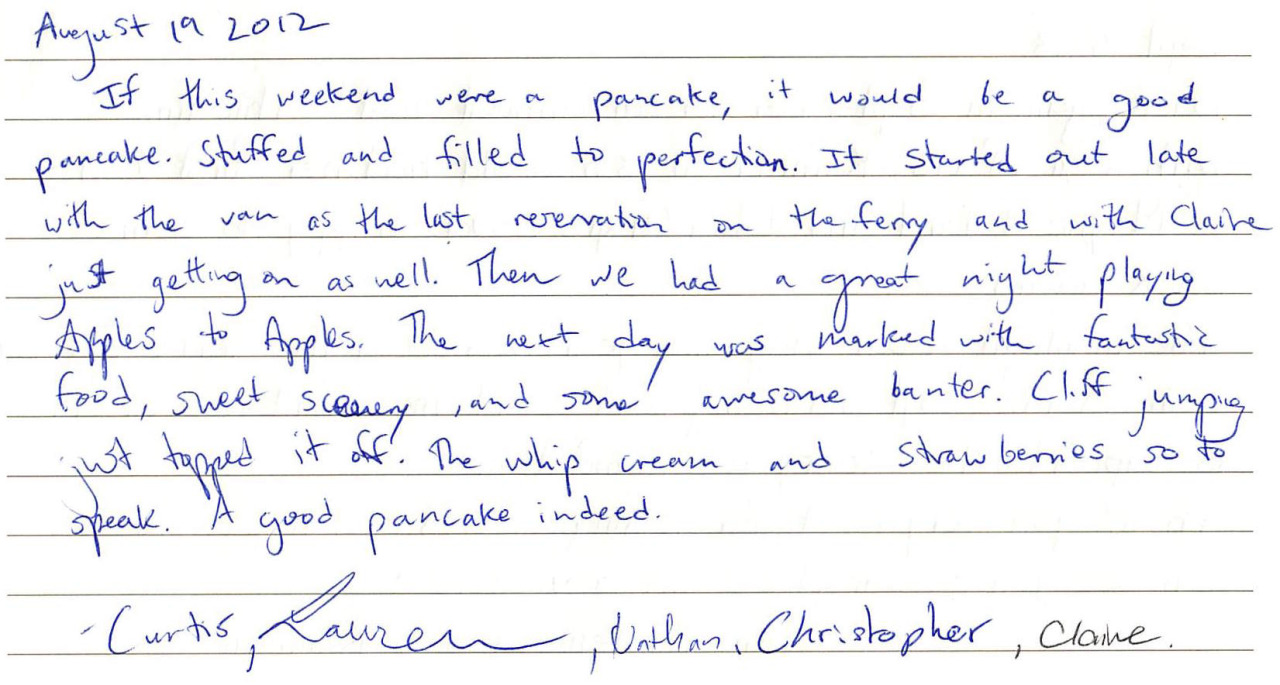 August 19 2012
If this weekend were a pancake, it would be a good
pancake. Stuffed and filled to perfection. It started out late
with the van as the last reservation on the ferry and with Claire
just getting on as well. Then we had a great night playing
Apples to Apples. The next day was marked with fantastic
food, sweet scenery, and some awesome banter. Cliff jumping
just topped it off. The whip cream and strawberries so to
speak. A good pancake indeed.
- Curtis, Lauren, Nathan, Christopher, Claire.